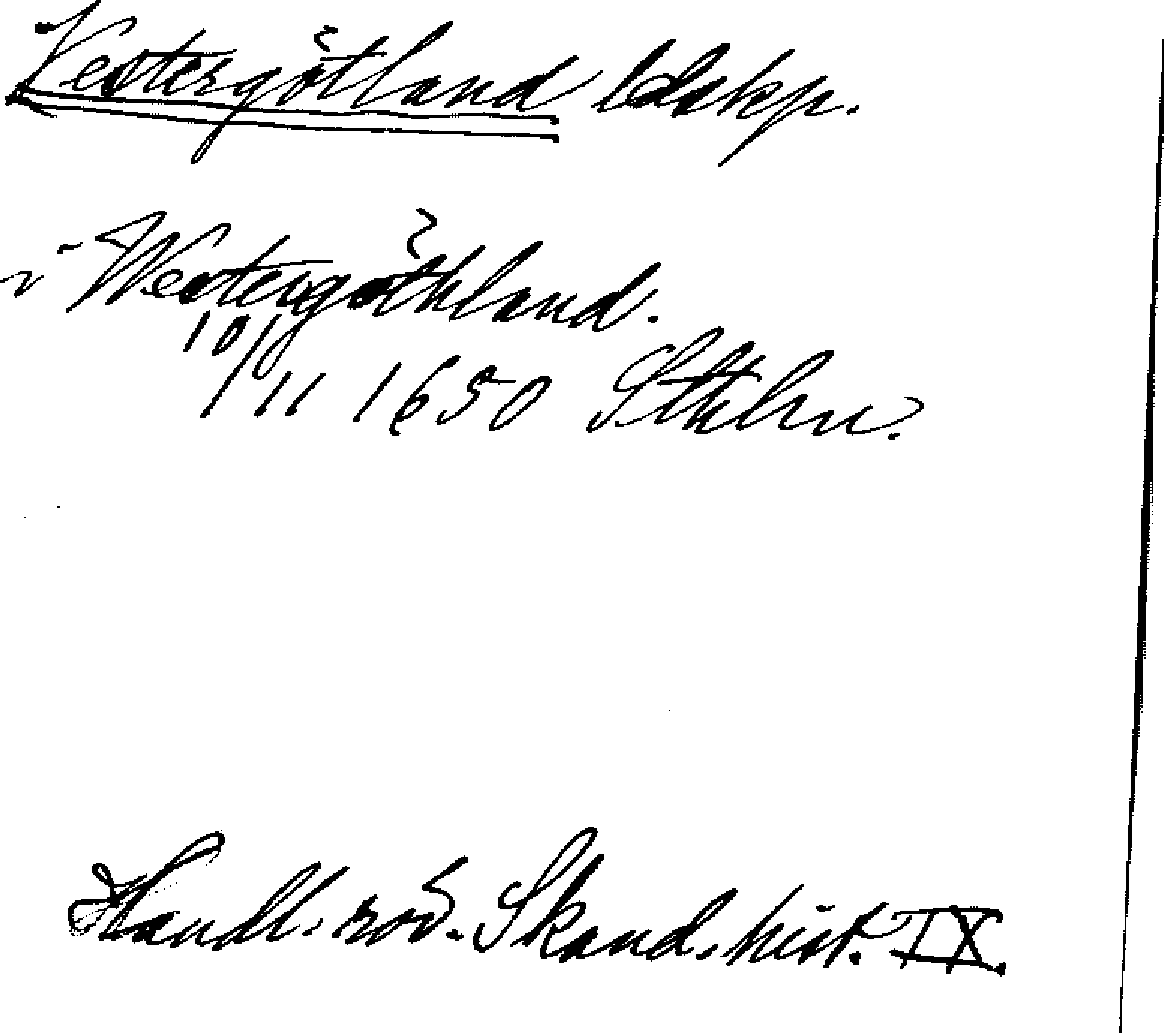 Vestergötland ldskp.
i Westergöthland.
10/11 1650 Sthlm.
Handl. rör. Skand. hist. IX.